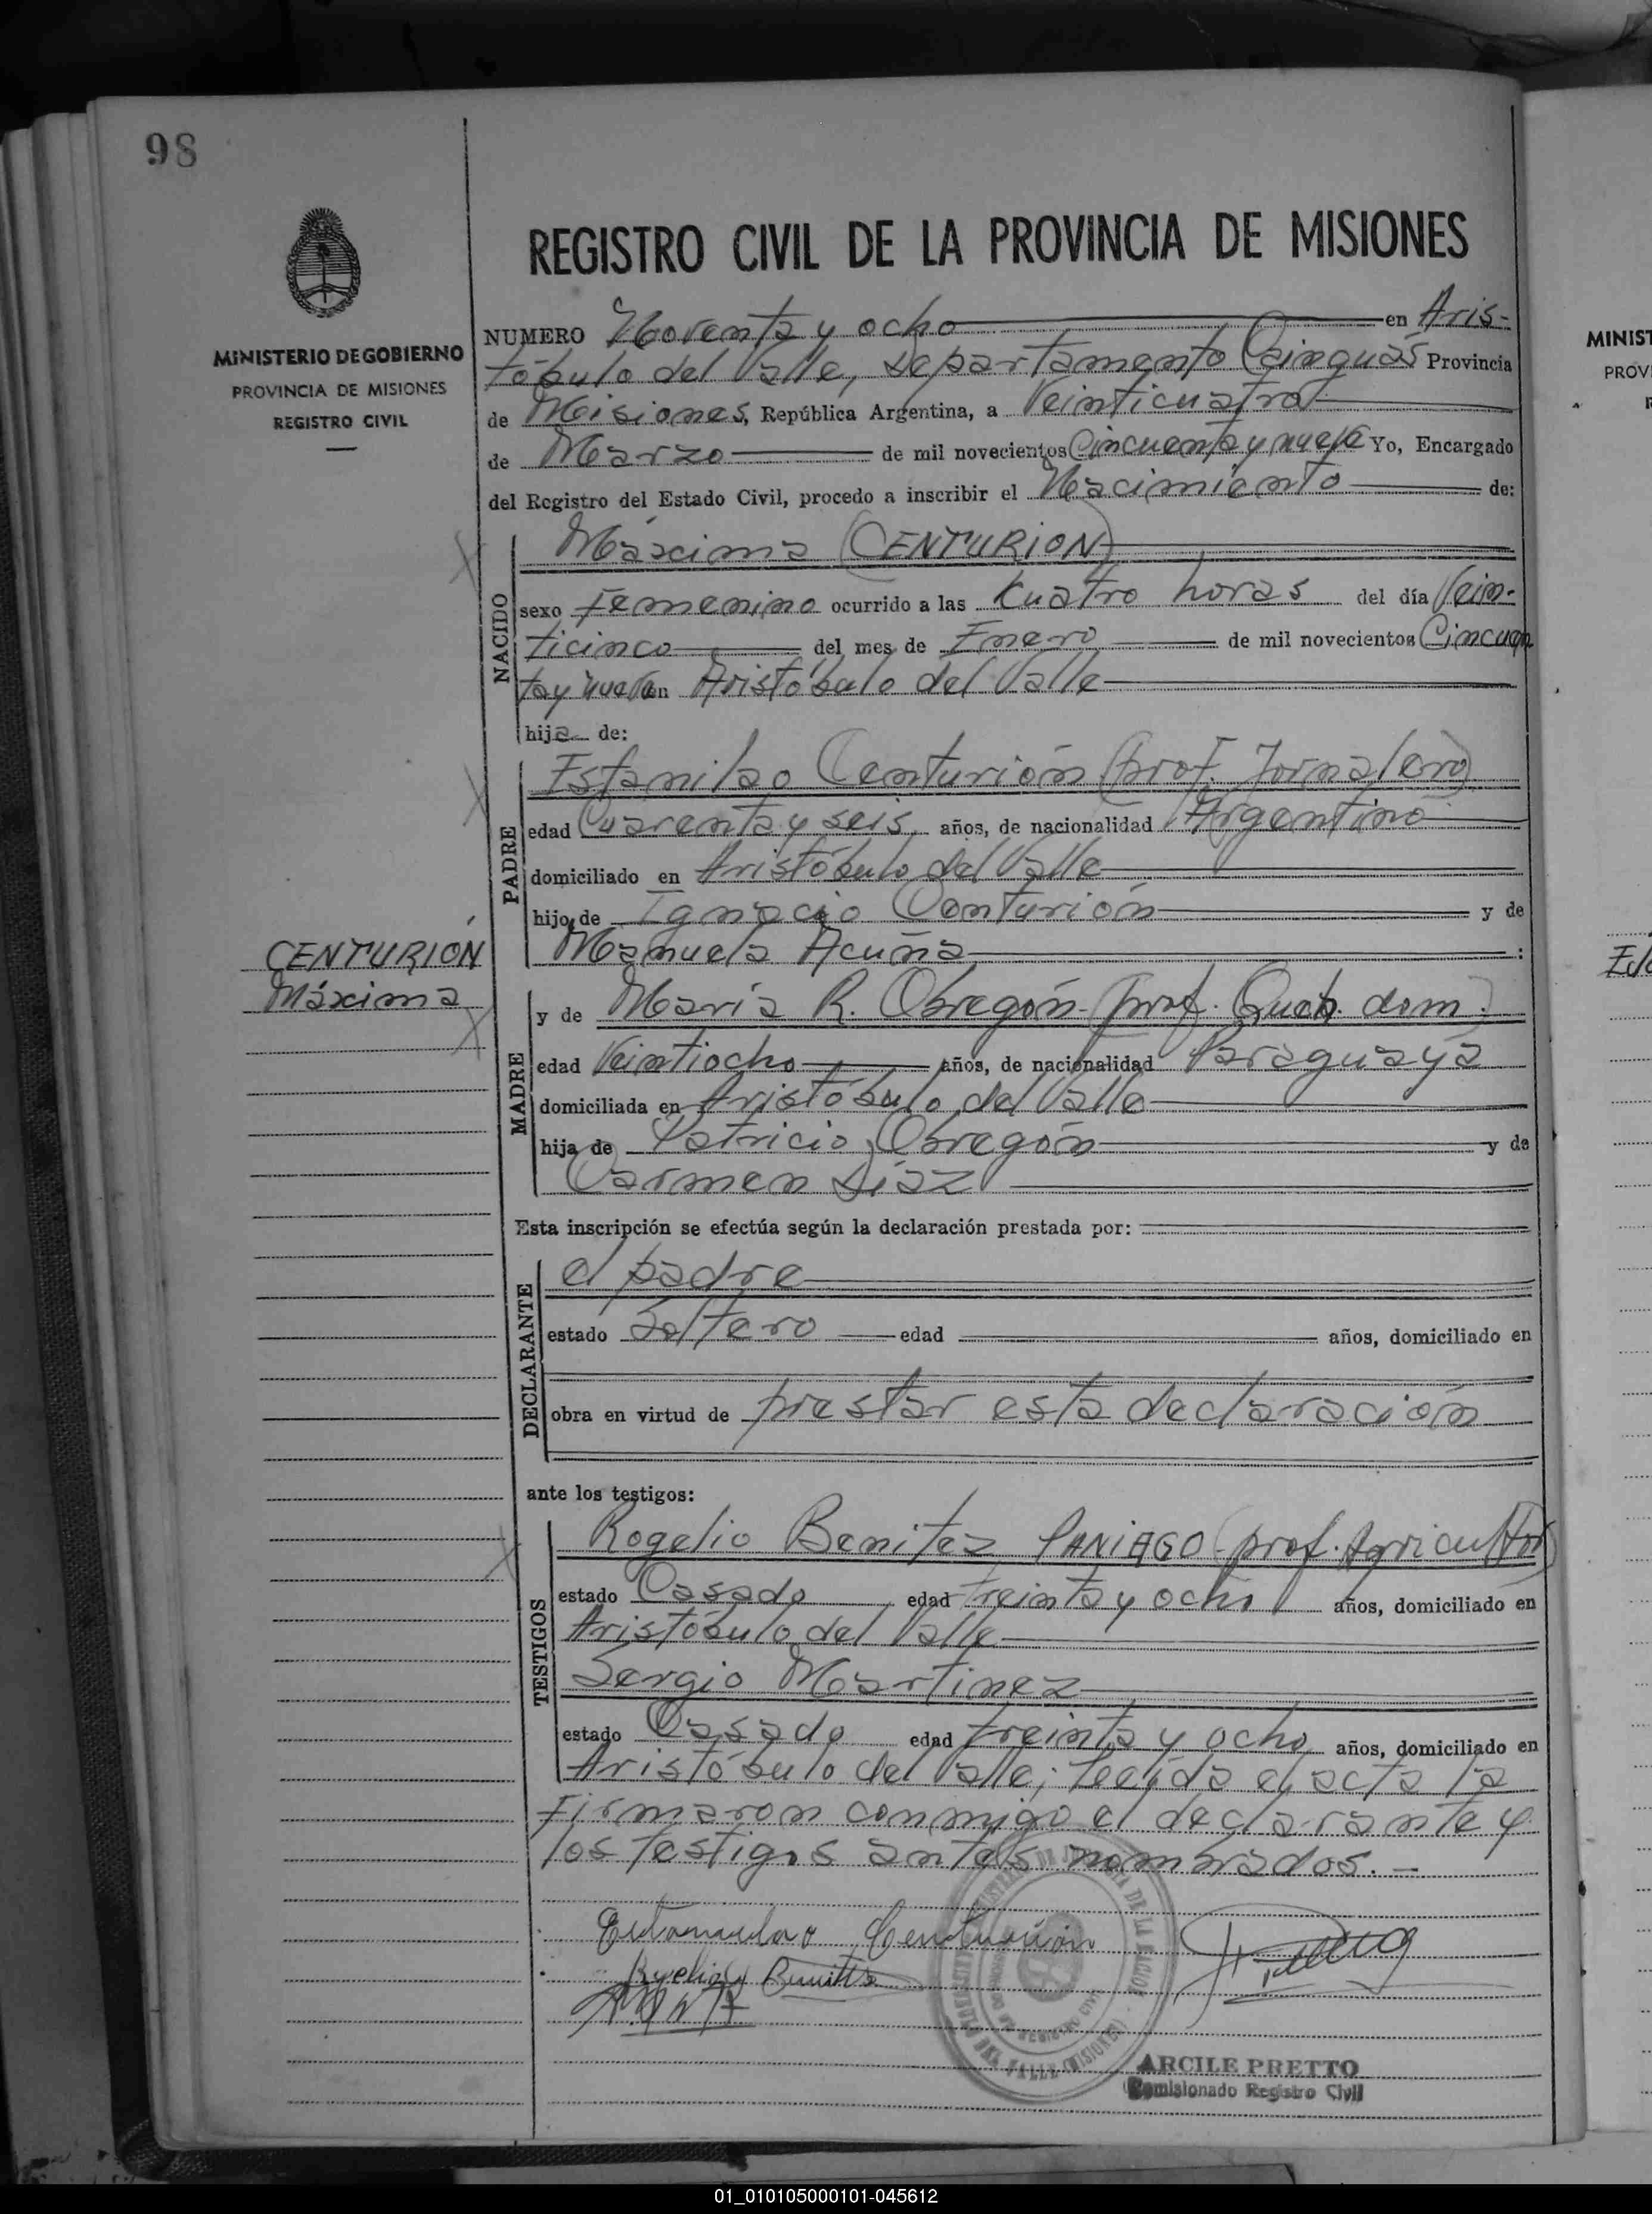 98
REGISTRO CIVIL DE LA PROVINCIA DE MISIONES
MINISTERIO DE GOBIERNO
PROVINCIA DE MISIONES
REGISTRO CIVIL
NUMERO Noventa y ocho en Aris-
tóbulo del Valle, Departamento Cainguás Provincia
de Misiones, República Argentina, a Veinticuatro
de Marzo de mil novecientos Cincuenta y nueve Yo, Encargado
del Registro del Estado Civil, procedo a inscribir el Nacimiento de:
NACIDO
Máxima (CENTURION)
sexo Femenino ocurrido a las Cuatro horas del día Vein-
ticinco del mes de Enero de mil novecientos Cincuen
ta y nueve en Aristóbulo del Valle
hija de:
PADRE
Estanilao Centurión (prof. Jornalero)
edad Cuarenta y seis años, de nacionalidad Argentino
domiciliado en Aristóbulo del Valle
hijo de Ignacio Centurión y de
Manuela Acuña :
CENTURIÓN
Máxima
MADRE
y de María R. Obregón (prof. Queh. dom.)
edad Veintiocho años, de nacionalidad Paraguaya
domiciliada en Aristóbulo del Valle
hija de Patricio Obregón y de
Carmen Díaz
Esta inscripción se efectúa según la declaración prestada por:
DECLARANTE
el padre
estado Soltero edad años, domiciliado en
obra en virtud de prestar esta declaración
ante los testigos:
TESTIGOS
Rogelio Benitez PANIAGO (prof. Agricultor)
estado Casado edad treinta y ocho años, domiciliado en
Aristóbulo del Valle
Sergio Martinez
estado Casado edad treinta y ocho años, domiciliado en
Aristóbulo del Valle; Leída el acta la
Firmaron conmigo el declarante y
los testigos antes nombrados. -
Centurión
Benites
ARCILE PRETTO
Comisionado Registro Civil
MINIST
PROVI
01_010105000101-045612